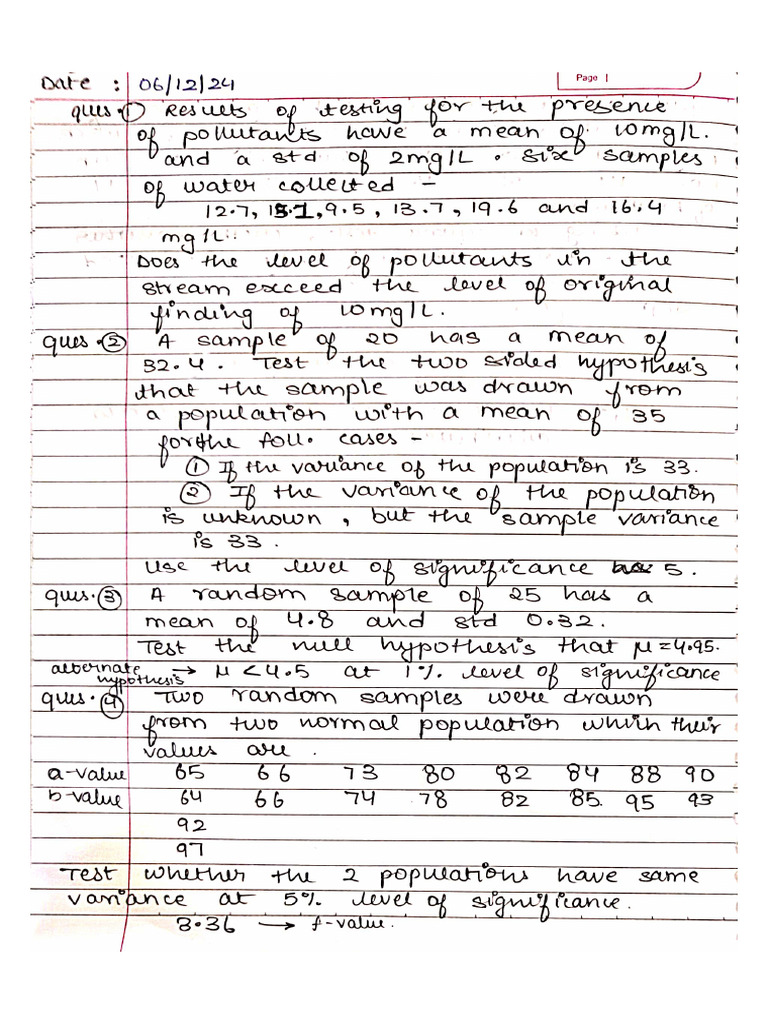 Date : 06/12/24 Page 1
ques. ① Results of testing for the presence
of pollutants have a mean of 10mg/L.
and a std of 2mg/L . Six samples
of water collected -
12.7, 15.1, 9.5, 13.7, 19.6 and 16.4
mg/L.
Does the level of pollutants in the
stream exceed the level of original
finding of 10mg/L.
ques. ② A sample of 20 has a mean of
32.4. Test the two sided hypothesis
that the sample was drawn from
a population with a mean of 35
for the foll. cases -
① If the variance of the population is 33.
② If the variance of the population
is unknown, but the sample variance
is 33.
Use the level of significance 5.
ques. ③ A random sample of 25 has a
mean of 4.8 and std 0.32.
Test the null hypothesis that μ = 4.95.
alternate hypothesis → μ < 4.5 at 1% level of significance
ques. ④ Two random samples were drawn
from two normal population their
values are .
a-value 65 66 73 80 82 84 88 90
b-value 64 66 74 78 82 85. 95 93
92
97
Test whether the 2 populations have same
variance at 5% level of significance.
3.36 → f-value.